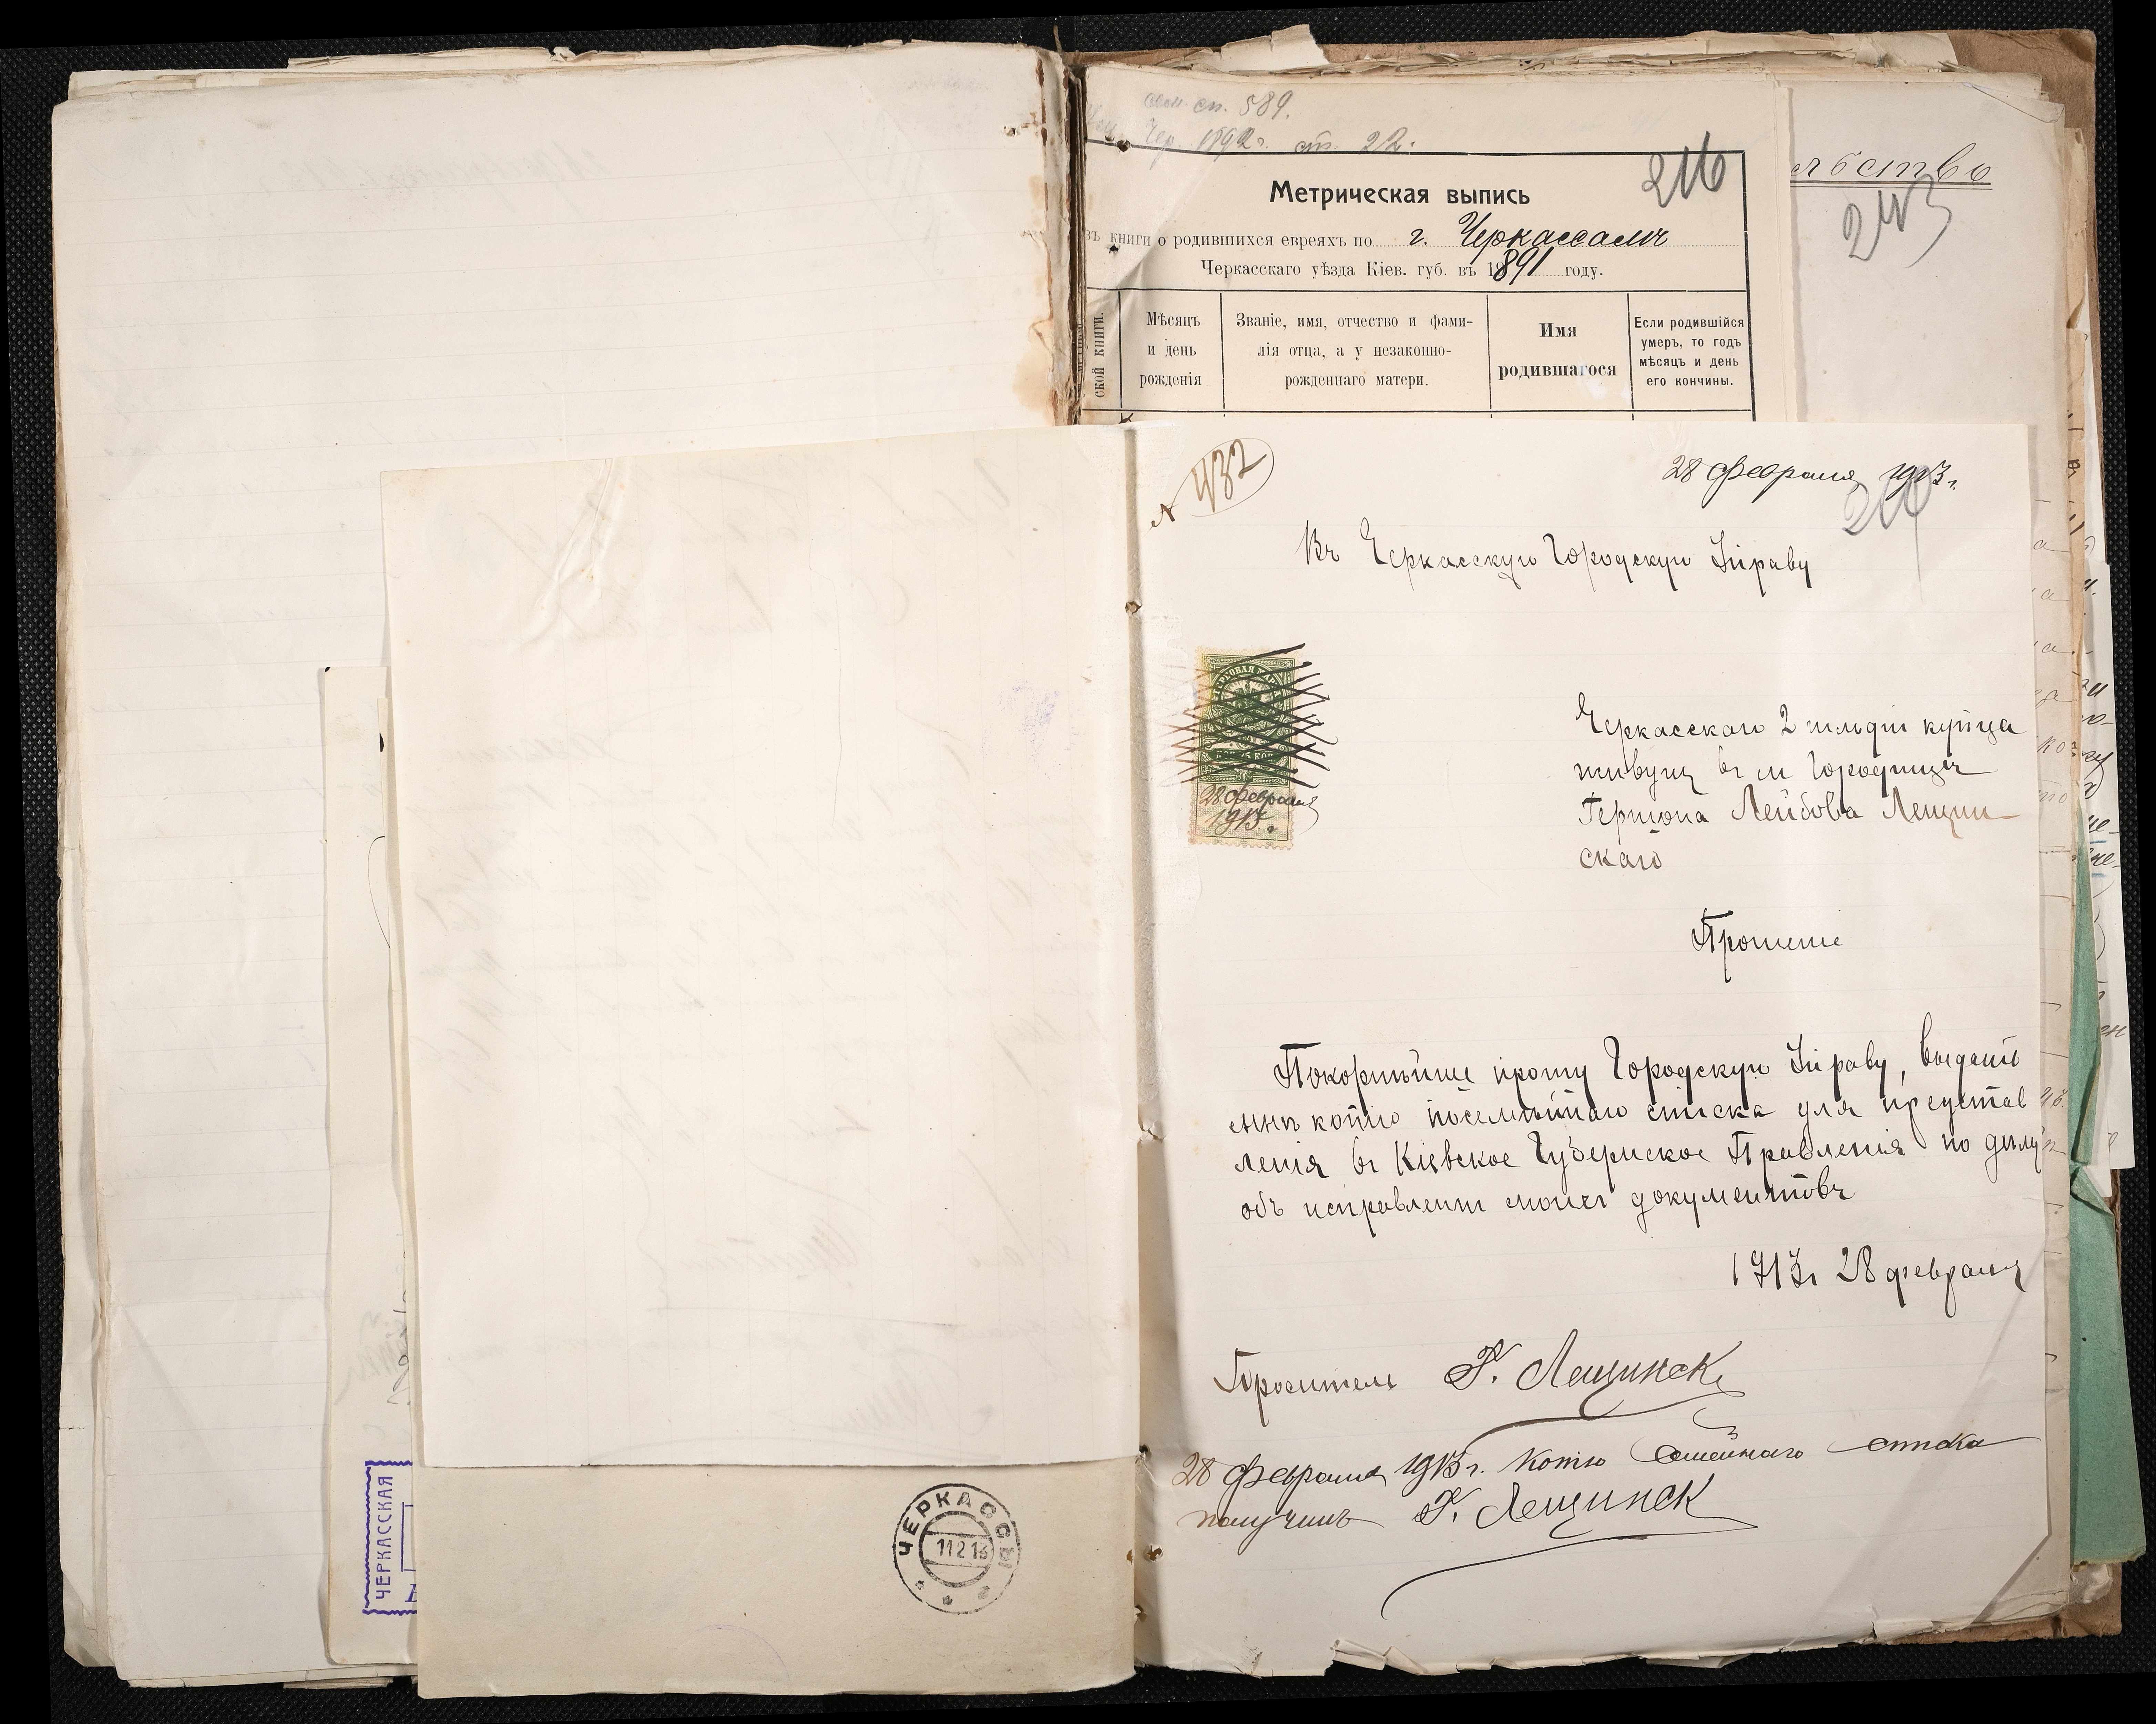 сем. сп. 589.
Чер. 1892 г. ст. 22.
216
Метрическая выпись
книги о родившихся евреяхъ по г. Черкассамъ
Черкасскаго уѣзда Кіев. губ. въ 1891 году.
ской книги.
Мѣсяцъ
и день
рожденія
Званіе, имя, отчество и фами-
лія отца, а у незаконно-
рожденнаго матери.
Имя
родившагося
Если родившійся
умеръ, то годъ
мѣсяцъ и день
его кончины.
льство
243
N 432
28 февраля 1913 г.
Въ Черкасскую Городскую Управу
28 февраля
1913 г.
Черкасскаго 2 гильдіи купца
живущ въ м Городище
Гершона Лейбова Лещин
скаго
Прошеніе
Покорнѣйше прошу Городскую Управу, выдать
мнѣ копію посемѣйнаго списка для представ
ленія въ Кіевское Губернское Правленія по дѣлу
объ исправленіи моихъ документовъ
1913 г 28 февраля
Проситель Г. Лещинск
28 февраля 1913 г. Копію Семейнаго списка
получилъ Г. Лещинск
ЧЕРКАССЫ
11 2 13
ЧЕРКАССКАЯ